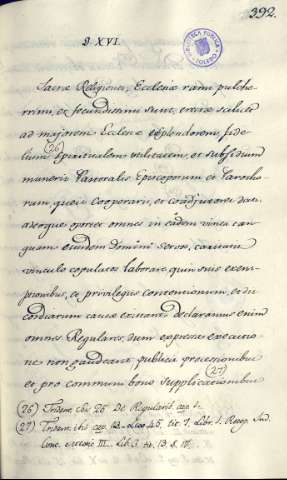 392.
§. XVI.
BIBLIOTECA PUBLICA
TOLEDO
Sacræ Religiones, Ecclesiæ rami pulcher-
rimi, et fecundissimi sunt, erectæ scilicet
ad majorem Ecclesiæ splendorem, fide-
(26)
lium Spiritualem utilitatem, et subsidium
muneris Pastoralis Episcoporum et Parocho-
rum, queis Cooperarii, et coadjutores datæ,
atque oportet omnes in eadem vinea tan-
quam ejusdem Domini servos, caritatis
vinculo copulatos laborare, quin suis exem-
ptionibus, et privilegiis contentionum, et dis-
cordiarum causæ existant: declaramus enim
omnes Regulares, dum expressa exemptio-
ne non gaudeant, publicis processionibus
(27)
et pro communi bono supplicationibus
(26) Trident. ibi 25 De Regularib. cap. 1.
(27) Trident. ibi cap. 13. Leg 45. tit. 1. Libr. 1. Recop. Ind.
Conc. III. Lib. 3. tit. 13. §. 17.